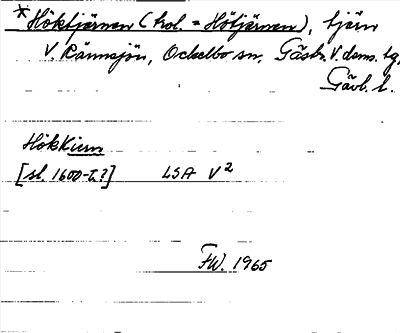 *Höktjärnen (trol. = Hötjärnen), tjärn
V. Rönnsjön, Ockelbo sn, Gästr. V. doms. tg,
Gävl. l.
Hökkiern
[sl. 1600-t.?] LSA V²
FW. 1965